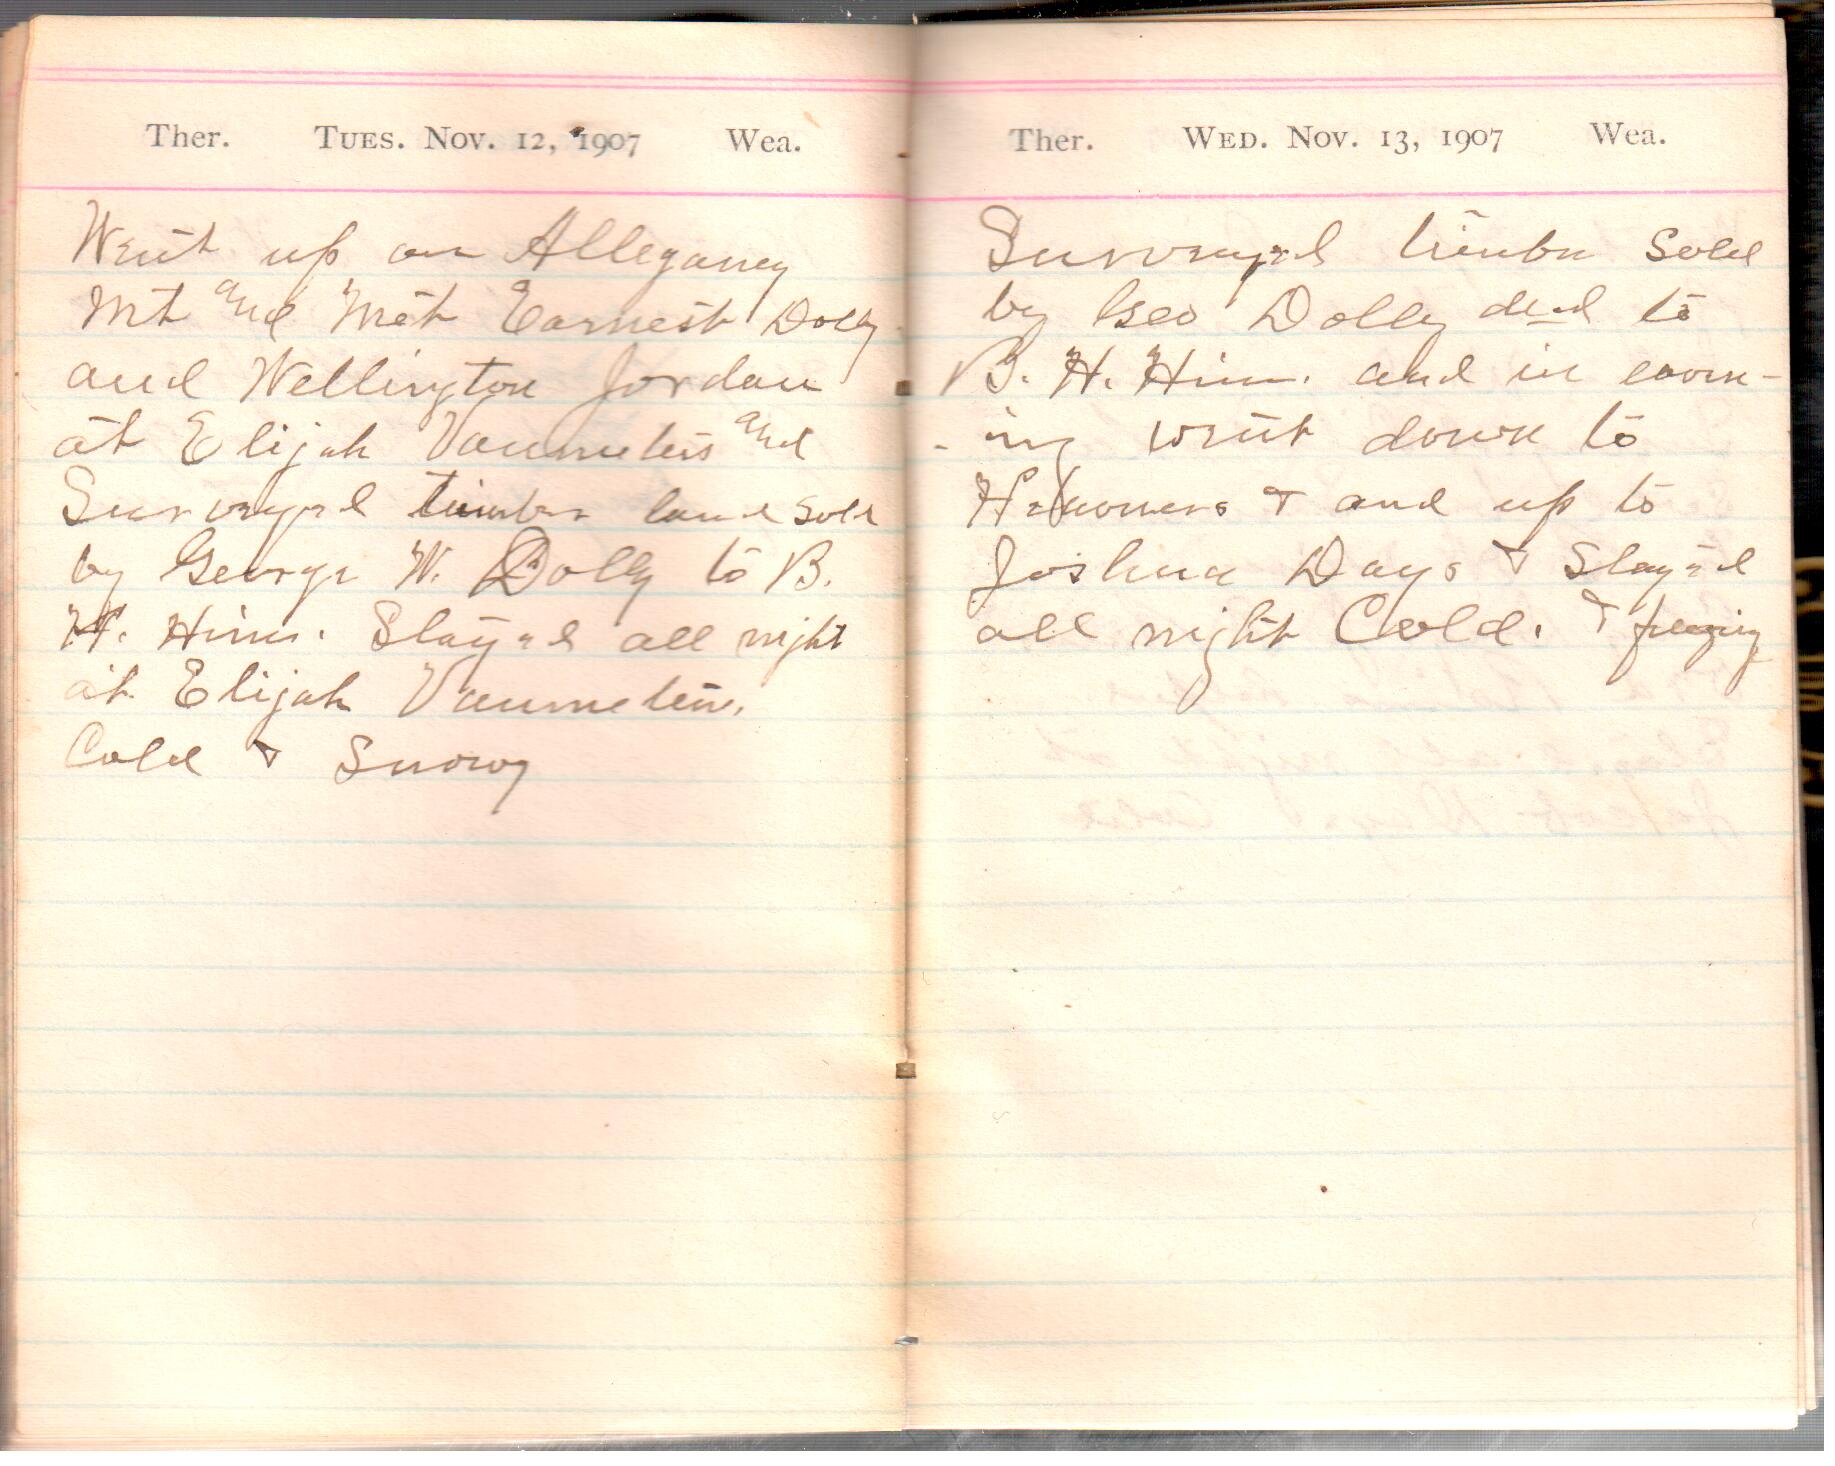 Ther. TUES. NOV. 12, 1907 Wea.
Went up on Allegany
Mt and Met Earnest Dolly
and Wellington Jordan
at Elijah Vanmeters and
Surveyed timber land sold
by George W. Dolly to B.
H. Hiner. Stayed all night
at Elijah Vanmeters.
Cold & Snowy
Ther. WED. NOV. 13, 1907 Wea.
Surveyed timber sold
by Geo Dolly decd to
B. H. Hiner. and in even-
-ing went down to
& and up to
Joshua Days & Stayed
all night Cold. & freezing